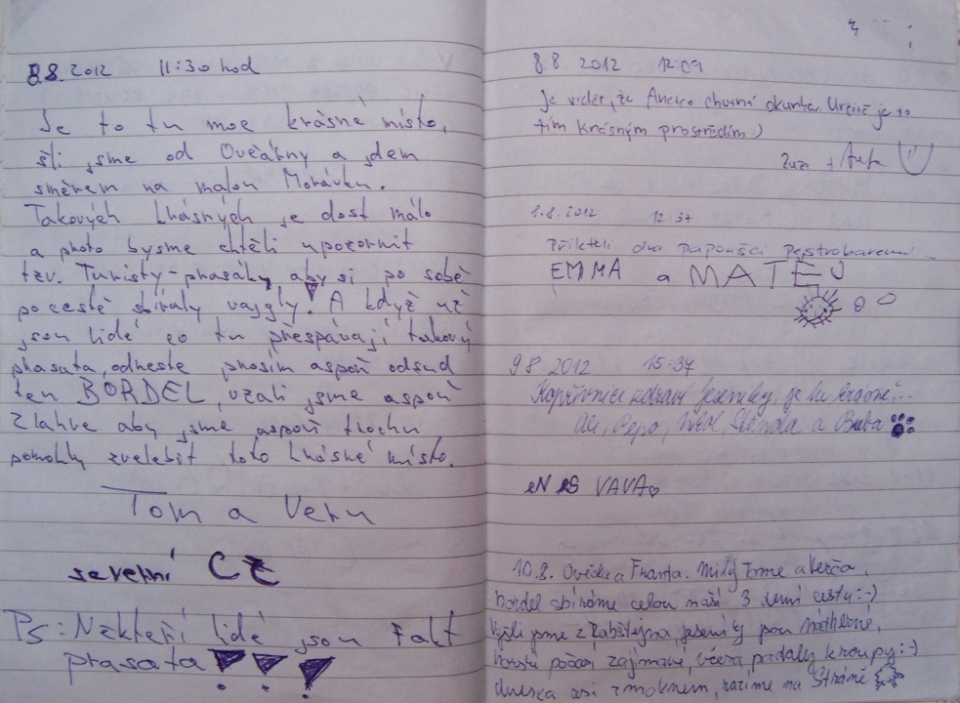 8.8. 2012 11:30 hod
Je to tu moc krásné místo,
šli jsme od Ovčárny a jdem
směrem na malou Morávku.
Takových krásných je dost málo
a proto bysme chtěli upozornit
tzv. Turisty-prasáky aby si po sobě
po cestě sbíraly vajgly! A když už
jsou lidé co tu přespávají takový
prasata, odneste prosím aspoň odsud
ten BORDEL, vzali jsme aspoň
2 lahve aby jsme aspoň trochu
pomohly zvelebit toto krásné místo.
Tom a Veru
severní CZ
Ps: Někteří lidé jsou Fakt
prasata!!!
8.8. 2012 12:09
Je vidět, že chutná okurka. Určitě je to
tím krásným prostředím :)
Zuzi +
1.8. 2012 12:37
Přileteli dva papoušci pestrobarevní
EMMA a MATEJ
9.8. 2012 15:37
Kopřivnice zdraví Jeseníky, je tu krásně...
Pepa, a
VAVA
10.8. Ovečka a Franta. Milý Tome a Verčo,
bordel sbíráme celou naší 3 denní cestu :-)
Vyšli jsme z Rabštejna, jeseníky jsou nádherné,
počasí zajímavé, včera padaly kroupy :-)
dneska asi zmoknem, razíme na